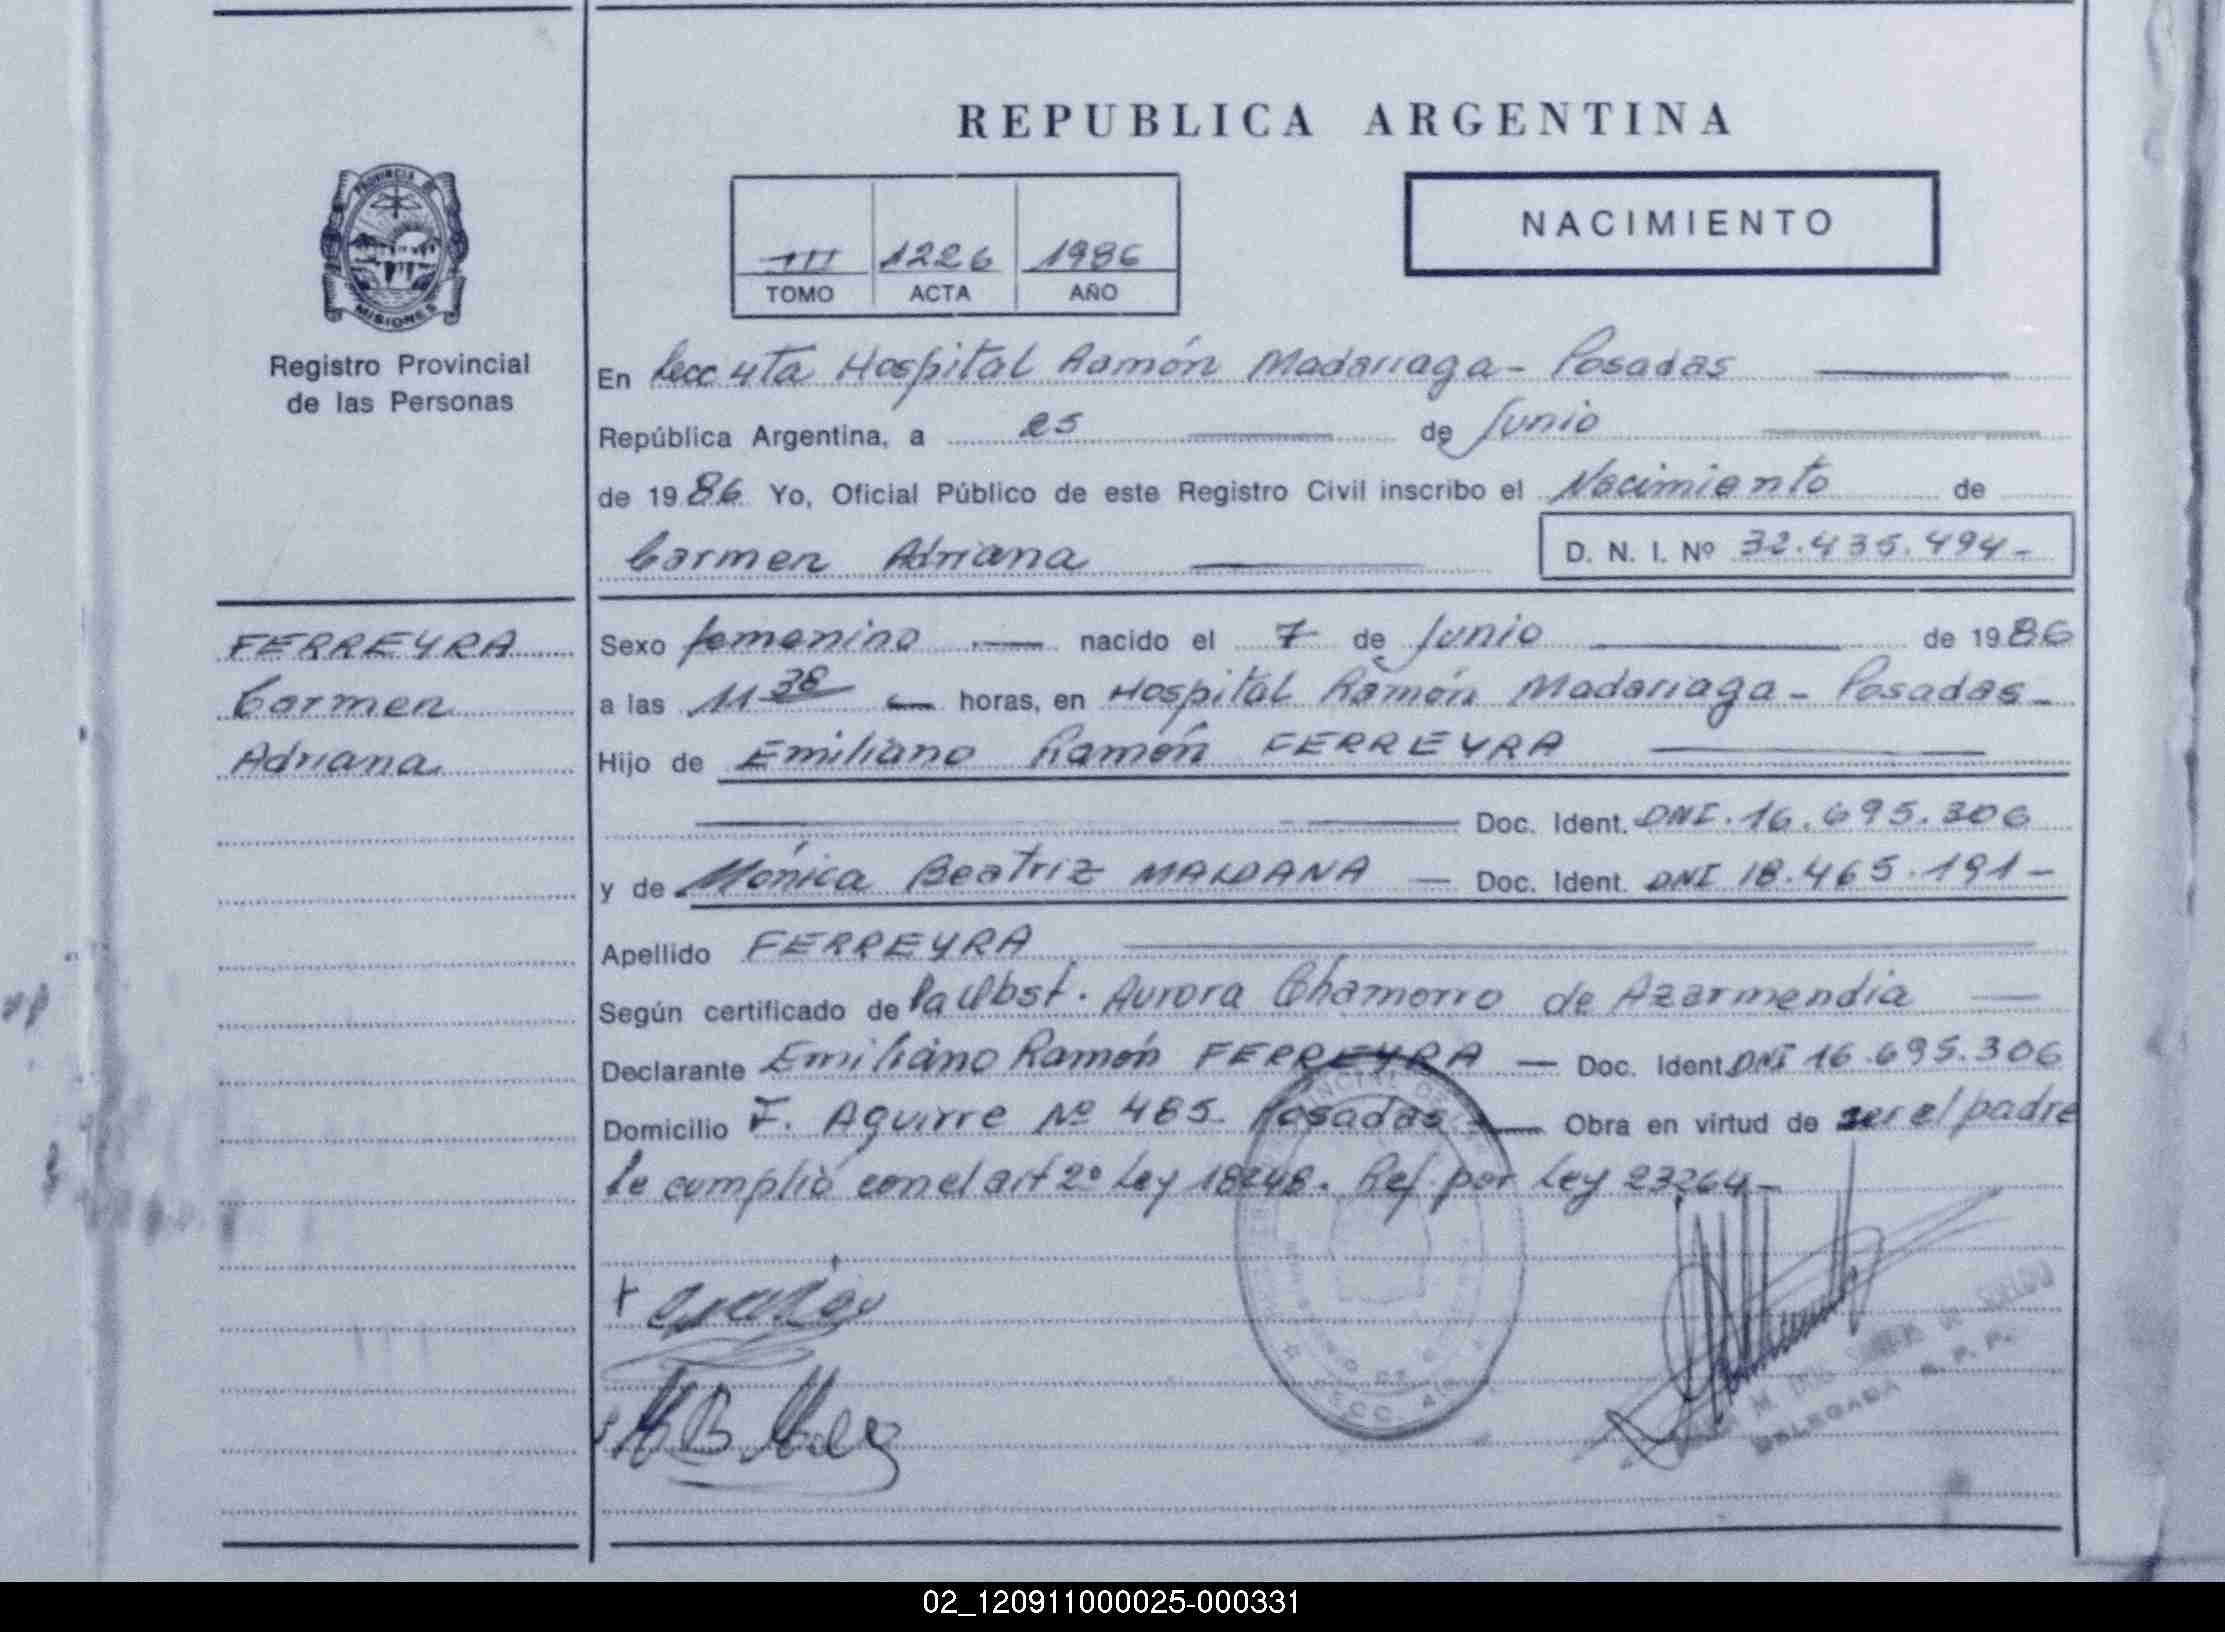 REPUBLICA ARGENTINA
PROVINCIA DE
MISIONES
Registro Provincial
de las Personas
III 1226 1986
TOMO ACTA AÑO
NACIMIENTO
En Secc 4ta Hospital Ramón Madariaga - Posadas
República Argentina, a 25 de Junio
de 1986 Yo, Oficial Público de este Registro Civil inscribo el Nacimiento de
Carmen Adriana
D. N. I. Nº 32.435.494-
FERREYRA
Carmen
Adriana
Sexo femenino nacido el 7 de Junio de 1986
a las 11 38 horas, en Hospital Ramón Madariaga - Posadas -
Hijo de Emiliano Ramón FERREYRA
Doc. Ident. DNI. 16.695.306
y de Mónica Beatriz MALDANA — Doc. Ident. DNI 18.465.191 -
Apellido FERREYRA
Según certificado de la Obst. Aurora Chamorro de Azarmendia
Declarante Emiliano Ramón FERREYRA — Doc. Ident. DNI 16.695.306
Domicilio F. Aguirre Nº 485 Posadas — Obra en virtud de ser el padre
Se cumplió con el art 2º Ley 18248. Ref. por Ley 23264 -
DELEGADA R. P. P.
02_120911000025-000331